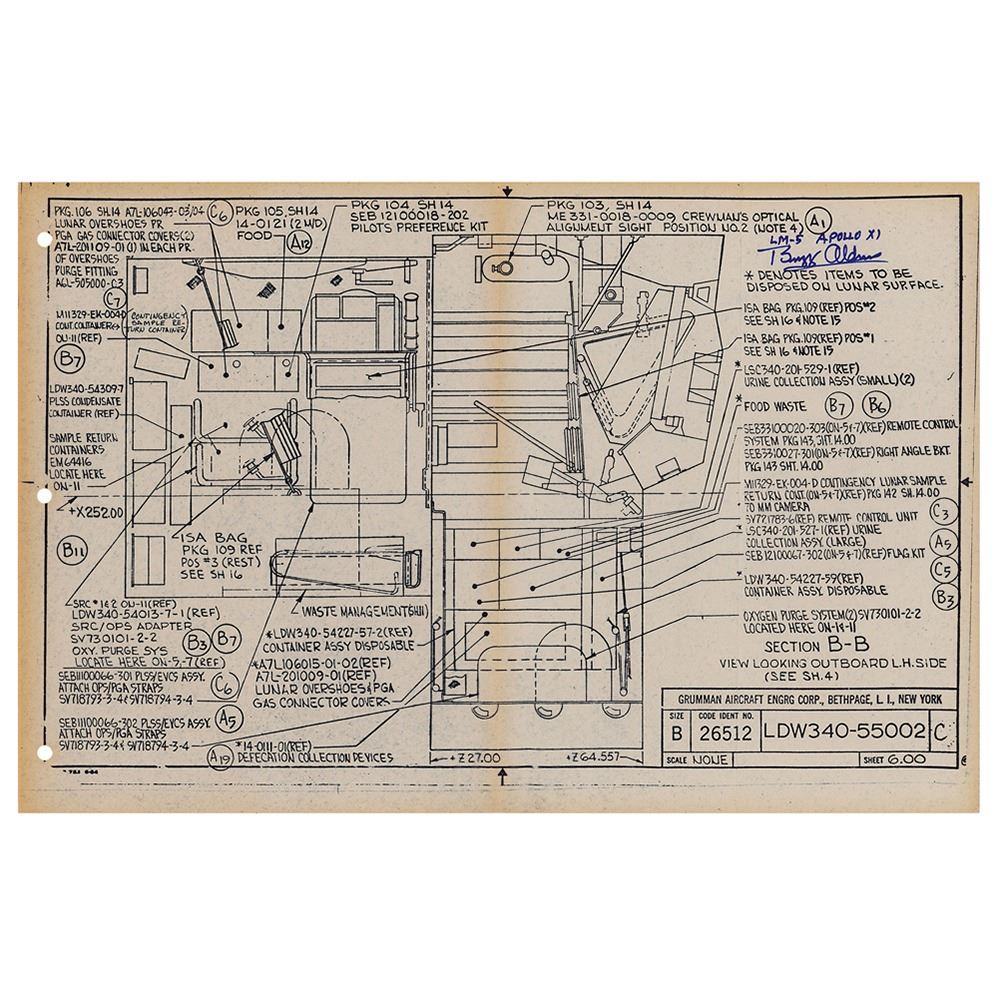 PKG. 106 SH.14 A7L-106043-03/04
LUNAR OVERSHOES PR
PGA GAS CONNECTOR COVERS(2)
A7L-201109-01 (1) IN EACH PR.
OF OVERSHOES
PURGE FITTING
C6
C7
PKG 105, SH 14
14-0121 (2 M/D)
FOOD
A12
PKG 104, SH 14
SEB 12100018-202
PILOTS PREFERENCE KIT
PKG 103, SH 14
ME 331-0018-0009, CREWMAN'S OPTICAL
ALIGNMENT SIGHT POSITION NO. 2 (NOTE 4)
A1
LM-5 APOLLO XI
Buzz Aldrin
* DENOTES ITEMS TO BE
DISPOSED ON LUNAR SURFACE.
M11329-EK-004-D
CONT. CONTAINER
ON-11 (REF)
CONTINGENCY
SAMPLE RE-
TURN CONTAINER
B7
LDW340-54309-7
PLSS CONDENSATE
CONTAINER (REF)
SAMPLE RETURN
CONTAINERS
EM 64416
LOCATE HERE
ON-11
+X252.00
B11
ISA BAG
PKG 109 REF
POS #3 (REST)
SEE SH 16
ISA BAG PKG.109(REF) POS#2
SEE SH 16 & NOTE 15
ISA BAG PKG.109(REF) POS#1
SEE SH 16 & NOTE 15
* LSC340-201-529-1 (REF)
URINE COLLECTION ASSY (SMALL)(2)
* FOOD WASTE B7 B6
SEB33100020-303(ON-5&7)(REF) REMOTE CONTROL
SYSTEM PKG 143, SHT. 14.00
SEB3310027-301(ON-5&7)(REF) RIGHT ANGLE BKT.
PKG 143 SHT. 14.00
M11329-EK-004-D CONTINGENCY LUNAR SAMPLE
RETURN CONT.(ON-5&7)(REF) PKG 142 SH. 14.00
70 MM CAMERA
C3
SV721783-6(REF) REMOTE CONTROL UNIT
* LSC340-201-527-1 (REF) URINE
COLLECTION ASSY. (LARGE)
A5
SEB 12100067-302 (ON-5&7)(REF) FLAG KIT
C5
* LDW 340-54227-59(REF)
CONTAINER ASSY. DISPOSABLE
B3
OXYGEN PURGE SYSTEM(2) SV730101-2-2
LOCATED HERE
SECTION B-B
VIEW LOOKING OUTBOARD L.H. SIDE
(SEE SH. 4)
SRC #1&2 ON-11 (REF)
LDW340-54013-7-1 (REF)
SRC/OPS ADAPTER
SV730101-2-2
OXY. PURGE SYS
LOCATE HERE ON-5,-7 (REF)
B3
B7
SEB11100066-301 PLSS/EVCS ASSY.
ATTACH OPS/PGA STRAPS
SV718793-3-4 & SV718794-3-4
C6
SEB11100066-302 PLSS/EVCS ASSY.
ATTACH OPS/PGA STRAPS
SV718793-3-4 & SV718794-3-4
A5
WASTE MANAGEMENT(SH11)
*LDW340-54227-57-2(REF)
CONTAINER ASSY DISPOSABLE
*A7L106015-01-02(REF)
A7L-201009-01 (REF)
LUNAR OVERSHOES & PGA
GAS CONNECTOR COVERS
*14-0111-01(REF)
DEFECATION COLLECTION DEVICES
A19
+Z 27.00
+Z 64.557
GRUMMAN AIRCRAFT ENGRG CORP., BETHPAGE, L. I., NEW YORK
SIZE
B
CODE IDENT NO.
26512
LDW340-55002
C
SCALE NONE
SHEET 6.00